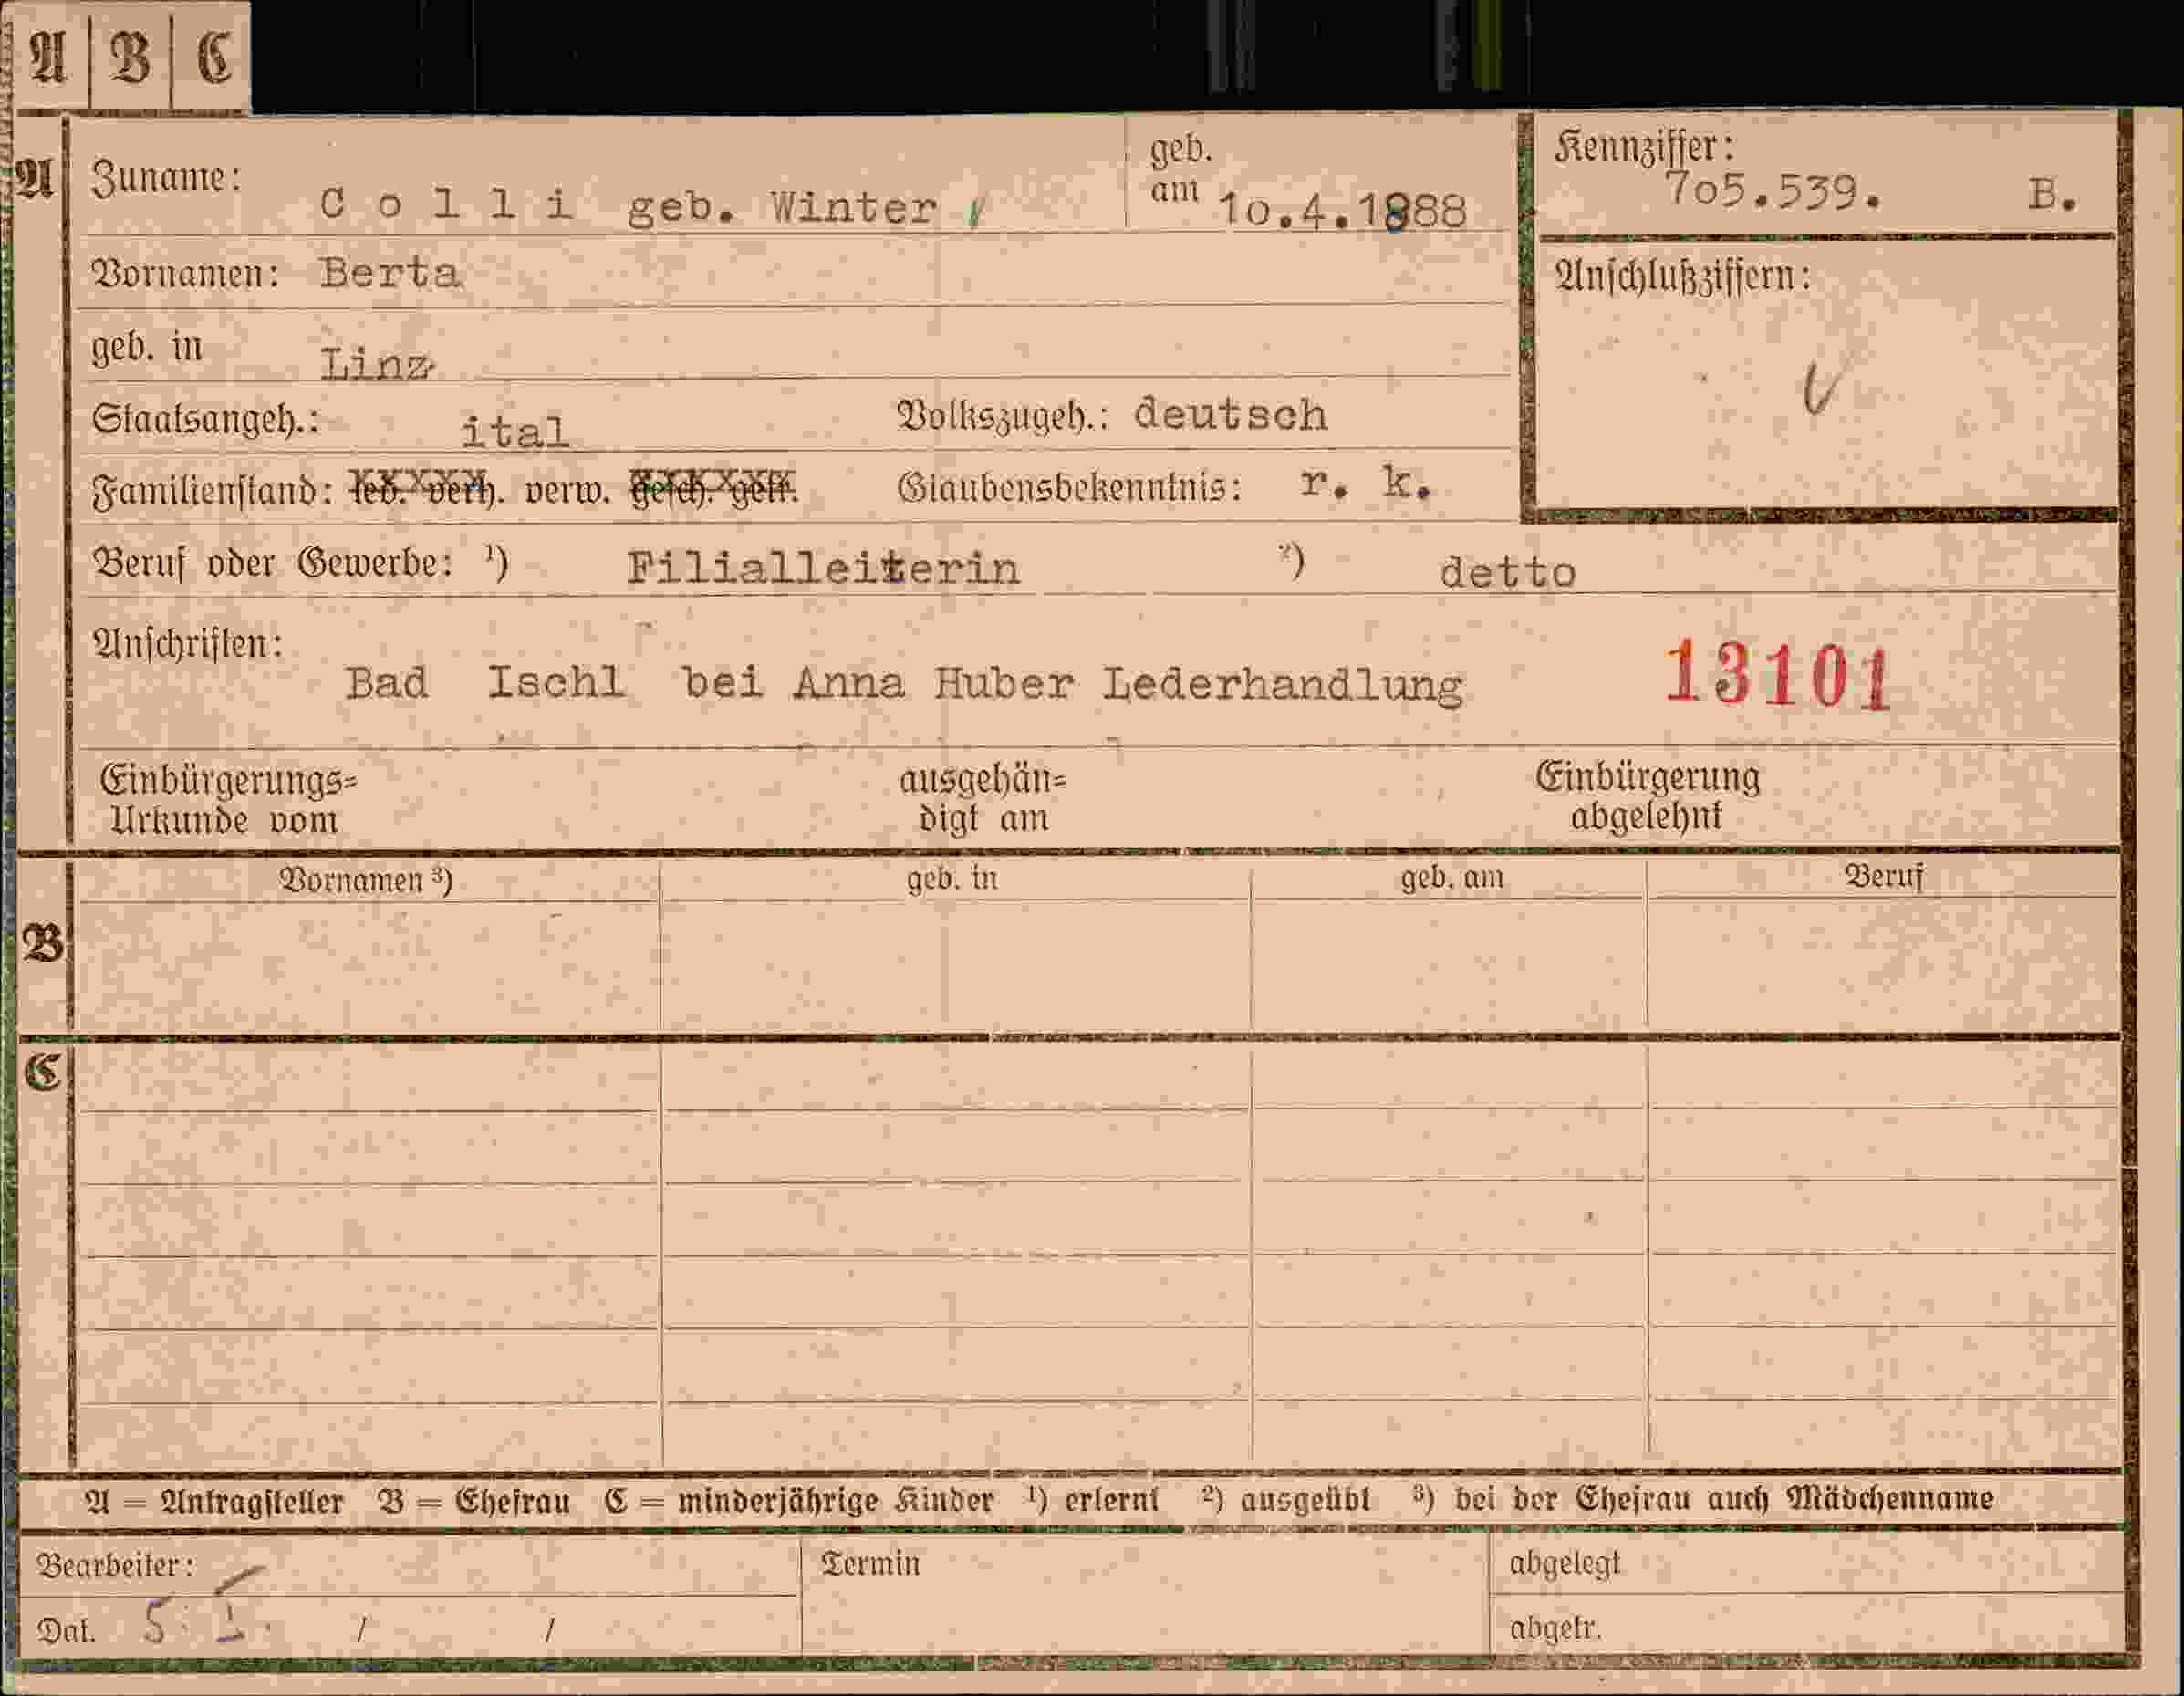 A B C
A Zuname: C o l l i geb. Winter geb. am 1o.4.1888 Kennziffer: 7o5.539. B.
Vornamen: Berta Anschlußziffern:
geb. in Linz
Staatsangeh.: ital Volkszugeh.: deutsch
Familienstand: led. verh. verw. gesch. getr. Glaubensbekenntnis: r. k.
Beruf oder Gewerbe: ¹) Filialleiterin ²) detto
Anschriften:
Bad Ischl bei Anna Huber Lederhandlung 13101
Einbürgerungs= ausgehän= Einbürgerung
Urkunde vom digt am abgelehnt
Vornamen ³) geb. in geb. am Beruf
B
C
A = Antragsteller B = Ehefrau C = minderjährige Kinder ¹) erlernt ²) ausgeübt ³) bei der Ehefrau auch Mädchenname
Bearbeiter: Termin abgelegt
Dat. 5. I. / / abgetr.